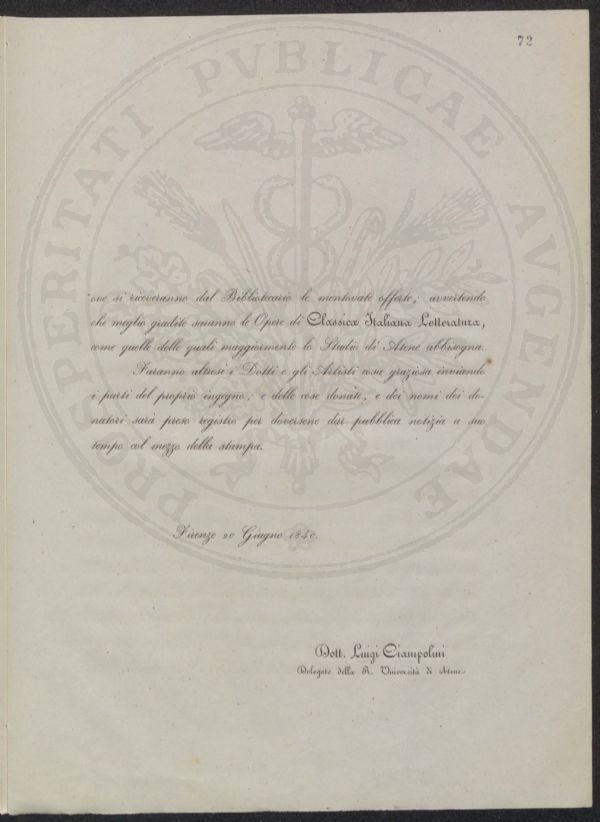 72
PROSPERITATI PVBLICAE AVGENDAE
ove si riceveranno dal Bibliotecario le mentovate offerte; avvertendo
che meglio gradite saranno le Opere di Classica Italiana Letteratura,
come quelle delle quali maggiormente lo Studio di Atene abbisogna.
Faranno altresì i Dotti e gli Artisti cosa graziosa inviando
i parti del proprio ingegno; e delle cose donate, e dei nomi dei do-
natori sarà preso registro per doversene dar pubblica notizia a suo
tempo col mezzo della stampa.
Firenze 20 Giugno 1840.
Dott. Luigi Ciampolini
Delegato della R. Università di Atene.